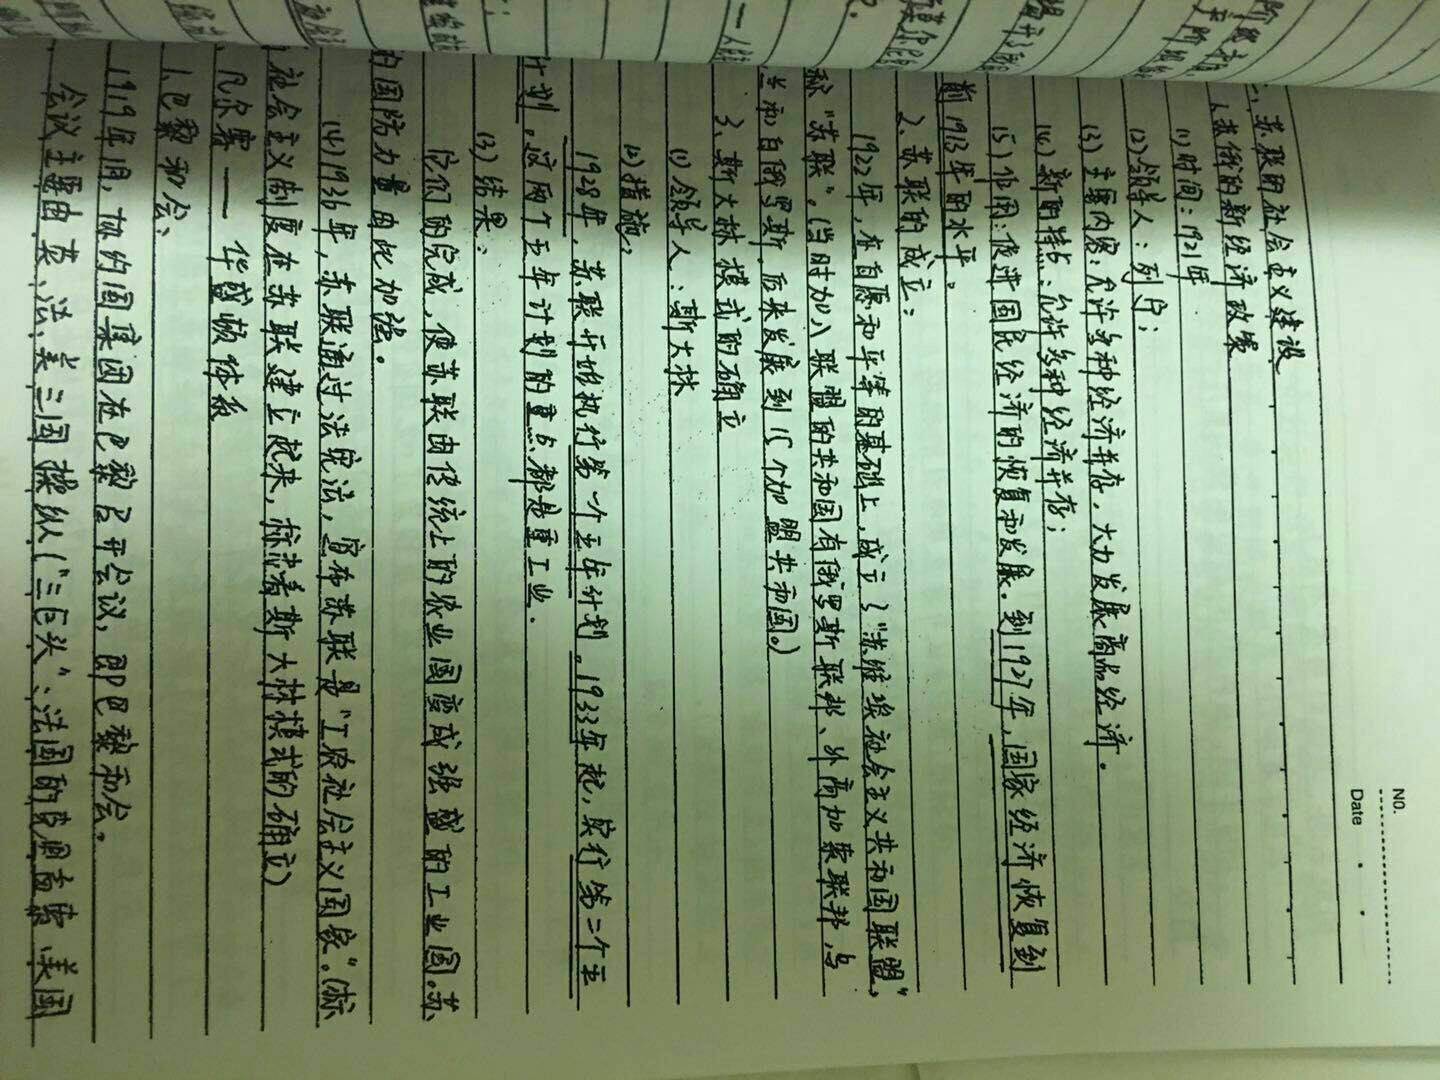 NO.
Date
一、苏联的社会主义建设
1.苏俄的新经济政策
(1)时间:1921年
(2)领导人:列宁;
(3)主要内容:允许多种经济并存,大力发展商品经济。
(4)新的特点:允许多种经济并存;
(5)作用:促进国民经济的恢复和发展。到1927年,国家经济恢复到
前1913年的水平。
2、苏联的成立:
1922年,在自愿和平等的基础上,成立了“苏维埃社会主义共和国联盟”,
称“苏联”。(当时加入联盟的共和国有俄罗斯联邦、外高加索联邦、乌
兰和白俄罗斯,后来发展到15个加盟共和国。)
3、斯大林模式的确立
(1)领导人:斯大林
(2)措施:
1928年,苏联开始执行第一个五年计划。1933年起,实行第二个五
计划。这两个五年计划的重点都是重工业.
(3)结果:
们的完成,使苏联由传统上的农业国变成强盛的工业国。苏
的国防力量由此加强。
(4)1936年,苏联通过法宪法,宣布苏联是“工农社会主义国家”。(标
社会主义制度在苏联建立起来,标志着斯大林模式的确立)
凡尔赛——华盛顿体系
1、巴黎和会:
1919年1月,协约国集团在巴黎召开会议,即巴黎和会。
会议主要由英、法、美三国操纵(“三巨头”:法国的克里孟梭、美国